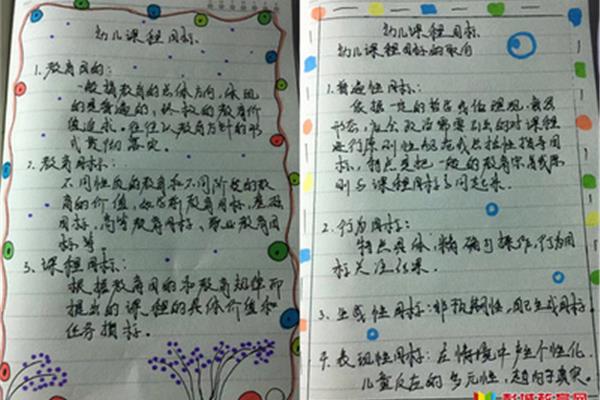 幼儿课程目标
1. 教育目的:
一般指教育的总体方向,体现
的是普遍的、终极的教育价
值追求。往往以教育方针的形
式最终落实。
2. 教育目标:
不同性质的教育和不同阶段的教
育的价值,如学前教育目标,基础
目标,高等教育目标、职业教育目
标等。
3. 课程目标:
根据教育目的和教育规律所
提出的课程的具体价值和
任务指标。
幼儿课程目标
幼儿课程目标的取向
1. 普遍性目标:
依据一定的哲学或伦理观、意识
形态、社会政治需要引出的对课程
进行原则性规范或总括性指导目
标,特点是把一般的教育宗旨或原
则与课程目标等同起来。
2. 行为目标:
特点具体,精确可操作,行为目
标关注结果。
3. 生成性目标:非预期性,自己生成目标.
4. 表现性目标:在情境中产生个性化
儿童反应的多元性,
彭城教育网